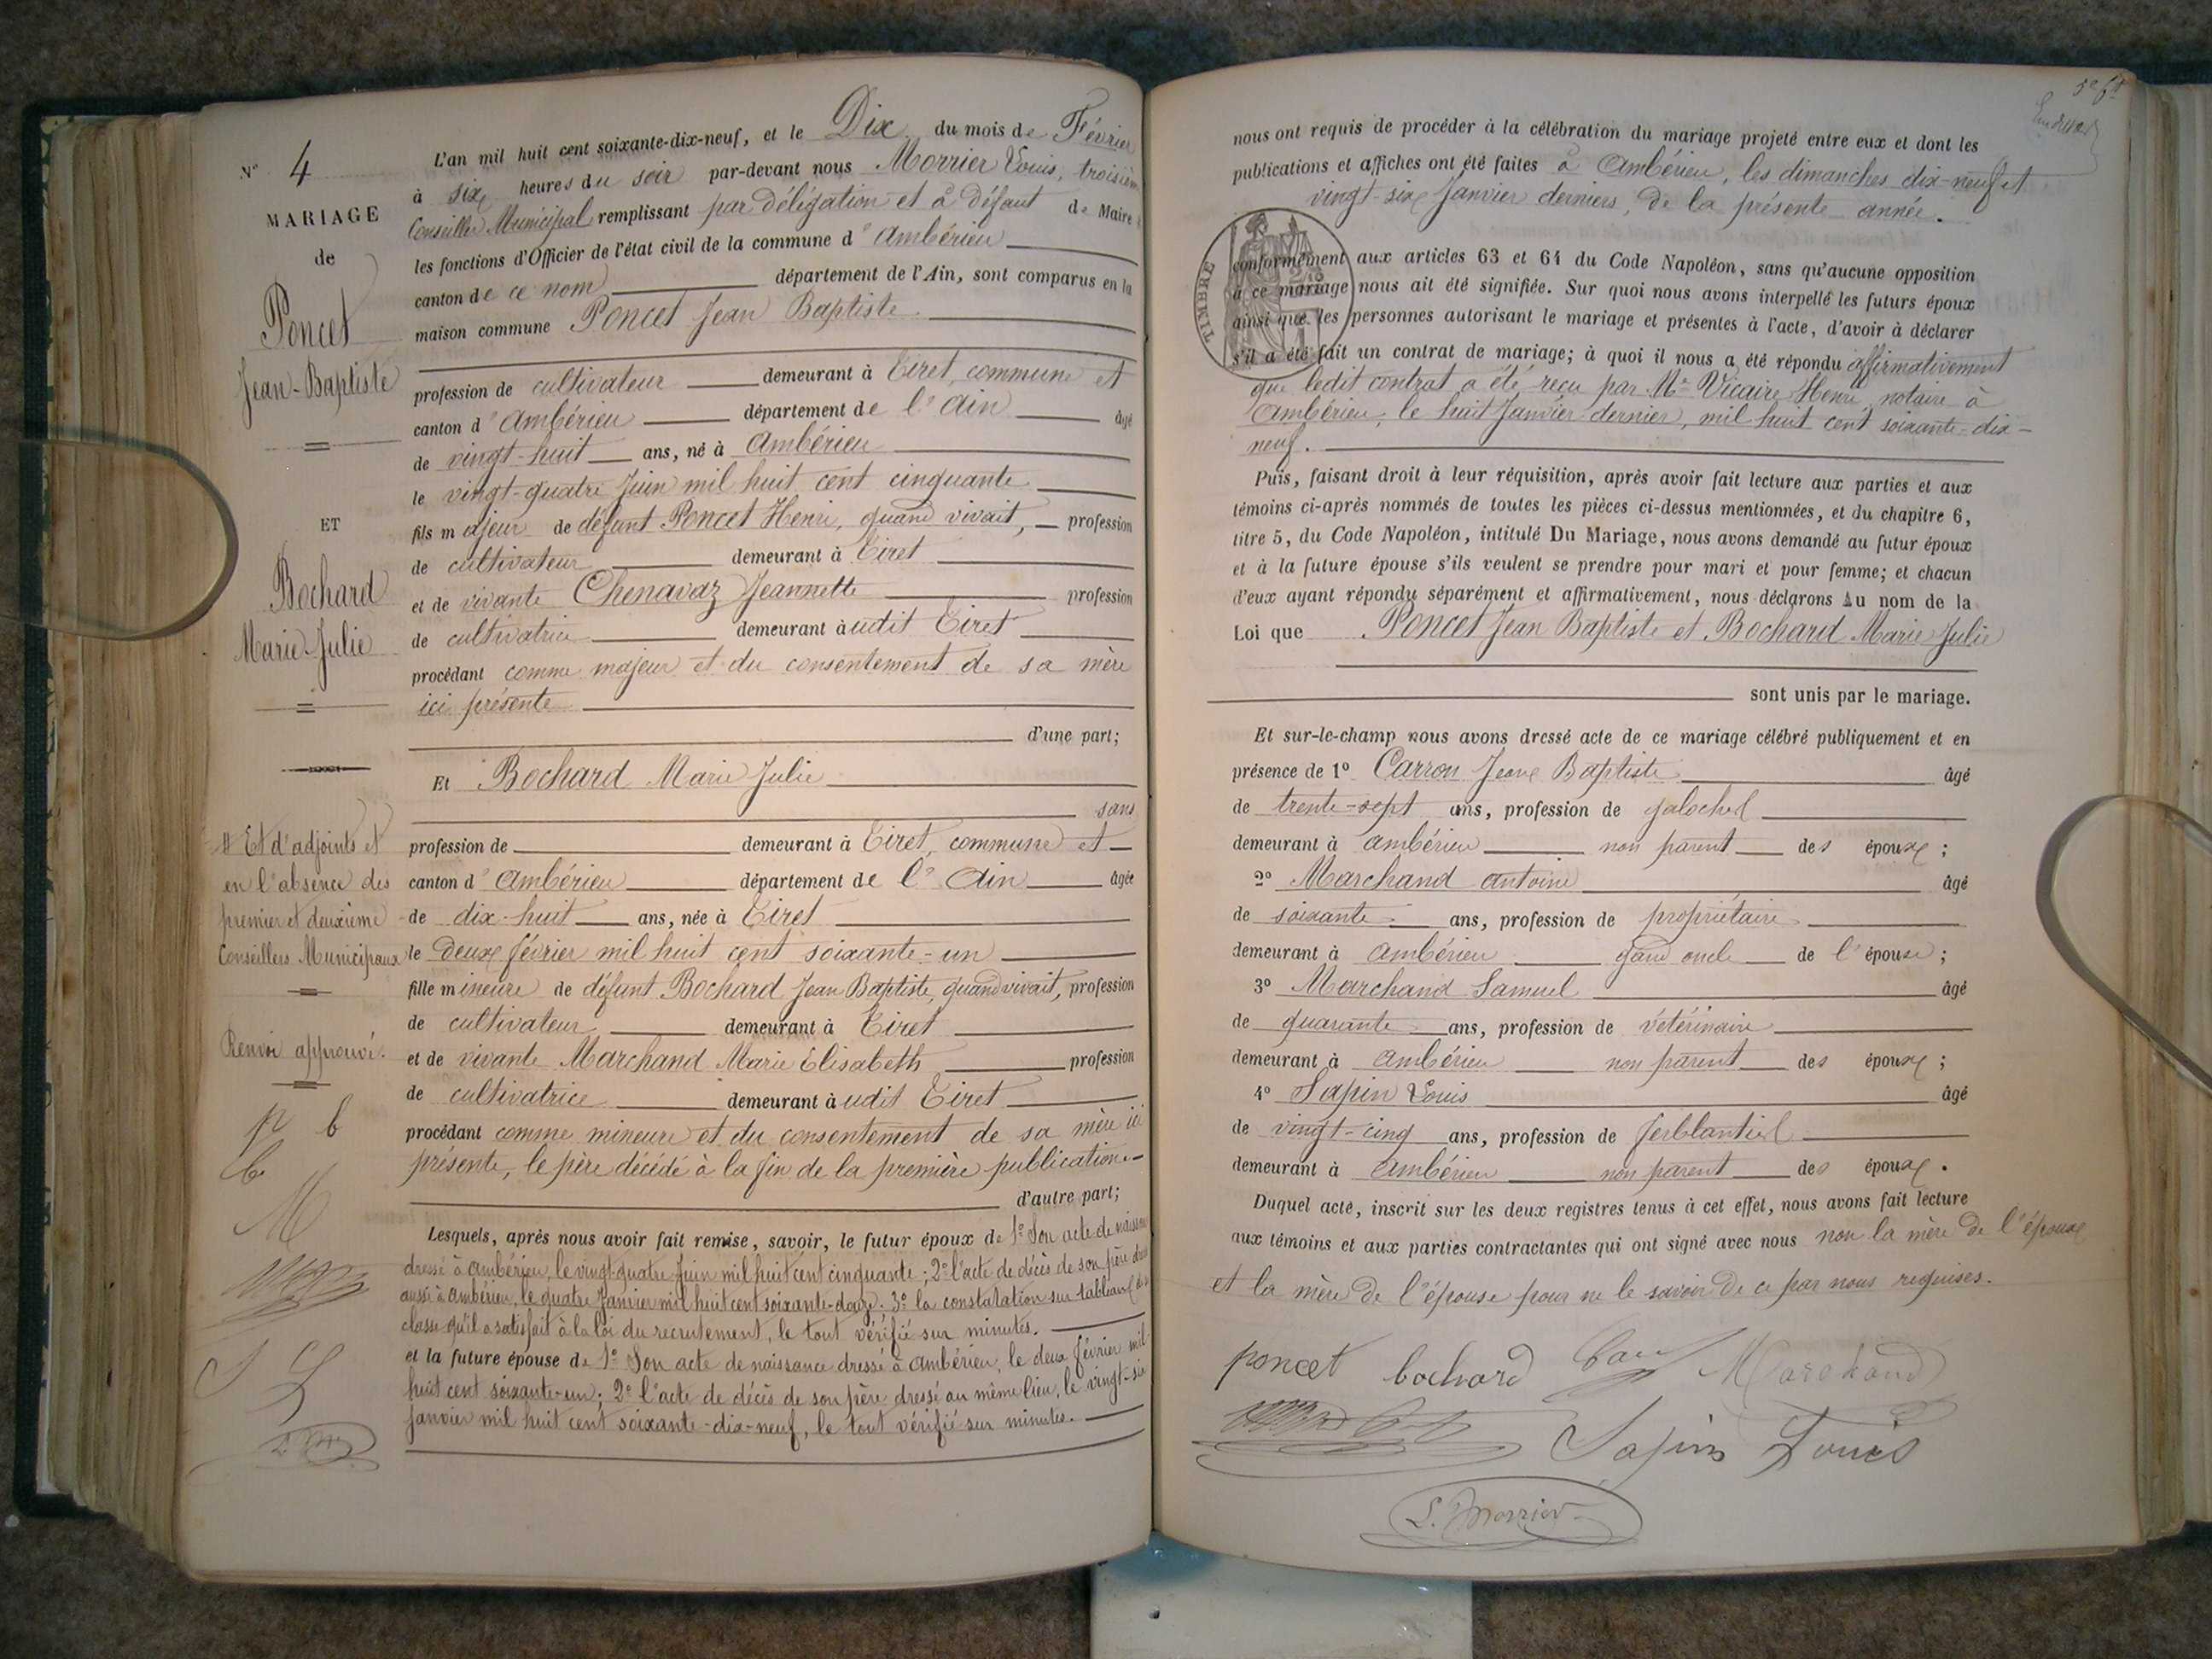 N° 4
MARIAGE
de
Poncet
Jean-Baptiste
ET
Bochard
Marie Julie
# Et d'adjoints et
en l'absence des
premier et deuxième
Conseillers Municipaux
Renvoi approuvé.
p b
C
M
S L
L'an mil huit cent soixante-dix-neuf, et le Dix du mois de Février
à six heures du soir par-devant nous Morrier Louis, troisième
Conseiller Municipal remplissant par délégation et à défaut de Maire #
les fonctions d'Officier de l'état civil de la commune d'Ambérieu
canton de ce nom département de l'Ain, sont comparus en la
maison commune Poncet Jean Baptiste
profession de cultivateur demeurant à Tiret, commune et
canton d'Ambérieu département de l'Ain âgé
de vingt-huit ans, né à Ambérieu
le vingt-quatre Juin mil huit cent cinquante
fils majeur de défunt Poncet Henri, quand vivait, profession
de cultivateur demeurant à Tiret
et de vivante Chenavaz Jeannette profession
de cultivatrice demeurant audit Tiret
procédant comme majeur et du consentement de sa mère
ici présente
d'une part;
Et Bochard Marie Julie
sans
profession de demeurant à Tiret, commune et
canton d'Ambérieu département de l'Ain âgée
de dix-huit ans, née à Tiret
le deux février mil huit cent soixante-un
fille mineure de défunt Bochard Jean Baptiste, quand vivait, profession
de cultivateur demeurant à Tiret
et de vivante Marchand Marie Elisabeth profession
de cultivatrice demeurant audit Tiret
procédant comme mineure et du consentement de sa mère ici
présente, le père décédé à la fin de la première publication
d'autre part;
Lesquels, après nous avoir fait remise, savoir, le futur époux de 1° Son acte de naissance
dressé à Ambérieu, le vingt-quatre Juin mil huit cent cinquante; 2° l'acte de décès de son père
aussi à Ambérieu, le quatre Janvier mil huit cent soixante-douze. 3° la constatation sur tableaux
classe qu'il a satisfait à la loi du recrutement, le tout vérifié sur minutes.
et la future épouse de 1° Son acte de naissance dressé à Ambérieu, le deux février mil
huit cent soixante-un; 2° l'acte de décès de son père dressé au même lieu, le vingt-six
Janvier mil huit cent soixante-dix-neuf, le tout vérifié sur minutes.
nous ont requis de procéder à la célébration du mariage projeté entre eux et dont les
publications et affiches ont été faites à Ambérieu, les dimanches dix-neuf et
vingt-six Janvier derniers, de la présente année.
TIMBRE
conformément aux articles 63 et 64 du Code Napoléon, sans qu'aucune opposition
à ce mariage nous ait été signifiée. Sur quoi nous avons interpellé les futurs époux
ainsi que les personnes autorisant le mariage et présentes à l'acte, d'avoir à déclarer
s'il a été fait un contrat de mariage; à quoi il nous a été répondu affirmativement
que ledit contrat a été reçu par Me Vicaire Henri notaire à
Ambérieu, le huit Janvier dernier, mil huit cent soixante-dix-
neuf.
Puis, faisant droit à leur réquisition, après avoir fait lecture aux parties et aux
témoins ci-après nommés de toutes les pièces ci-dessus mentionnées, et du chapitre 6,
titre 5, du Code Napoléon, intitulé Du Mariage, nous avons demandé au futur époux
et à la future épouse s'ils veulent se prendre pour mari et pour femme; et chacun
d'eux ayant répondu séparément et affirmativement, nous déclarons Au nom de la
Loi que Poncet Jean Baptiste et Bochard Marie Julie
sont unis par le mariage.
Et sur-le-champ nous avons dressé acte de ce mariage célébré publiquement et en
présence de 1° Carron Jean Baptiste âgé
de trente-sept ans, profession de galocher
demeurant à Ambérieu non parent des époux;
2° Marchand Antoine âgé
de soixante ans, profession de propriétaire
demeurant à Ambérieu gand oncle de l'épouse;
3° Marchand Samuel âgé
de quarante ans, profession de vétérinaire
demeurant à Ambérieu non parent des époux;
4° Sapin Louis âgé
de vingt-cinq ans, profession de ferblantier
demeurant à Ambérieu non parent des époux.
Duquel acte, inscrit sur les deux registres tenus à cet effet, nous avons fait lecture
aux témoins et aux parties contractantes qui ont signé avec nous non la mère de l'époux
et la mère de l'épouse pour ne le savoir de ce par nous requises.
poncet bochard Marchand
Sapin Louis
L. Morrier